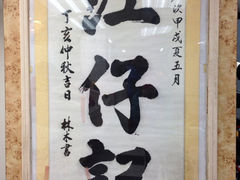 次甲戌夏五月
江仔記
丁亥仲秋吉日
林木書